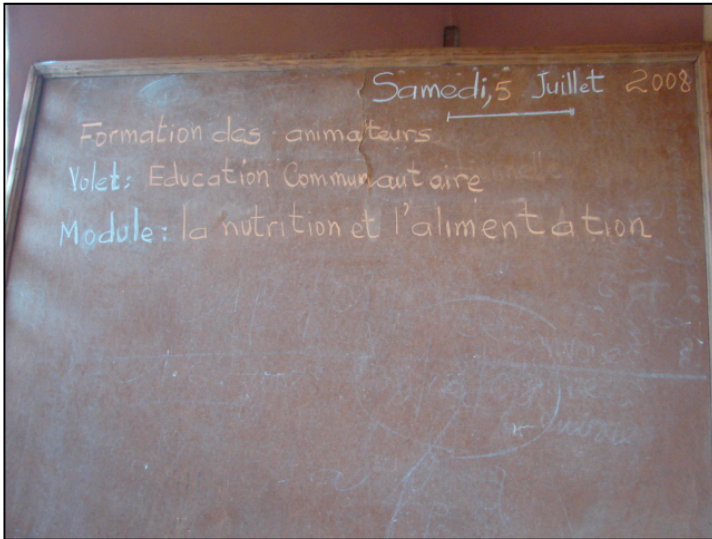 Samedi, 5 Juillet 2008
Formation des animateurs
Volet: Education Communautaire
Module: la nutrition et l'alimentation